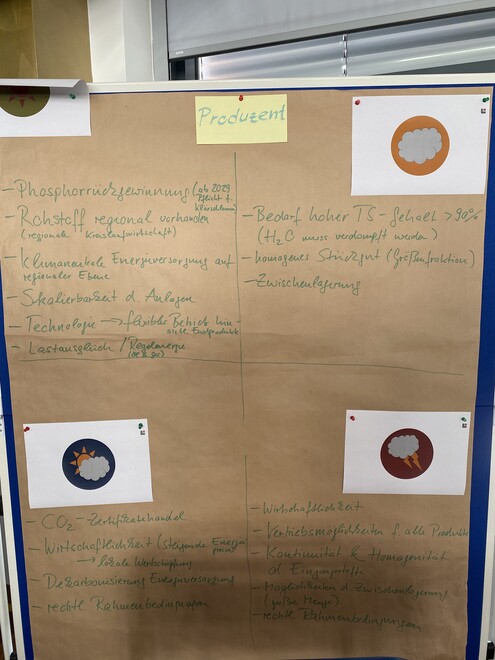 Produzent
- Phosphorrückgewinnung (ab 2029
Pflicht f.
Klärschlamm)
- Rohstoff regional vorhanden
(regionale Kreislaufwirtschaft)
- Klimaneutrale Energieversorgung auf
regionaler Ebene
- Skalierbarkeit d. Anlagen
- Technologie → flexibler Betrieb hin-
sichtl. Endprodukte
- Lastausgleich / Regelenergie
- Bedarf hoher TS-Gehalt >90%
(H₂C muss verdampft werden)
- homogenes Stückgut (Größenfraktion)
- Zwischenlagerung
- CO₂-Zertifikatehandel
- Wirtschaftlichkeit (steigende Energie
preise)
→ lokale Wertschöpfung
- Dekarbonisierung Energieversorgung
- rechtl. Rahmenbedingungen
- Wirtschaftlichkeit
- Vertriebsmöglichkeiten f. alle Produkte
- Kontinuität & Homogenität
d. Eingangsstoffe
- Möglichkeiten d. Zwischenlagerung
(große Menge)
- rechtl. Rahmenbedingungen